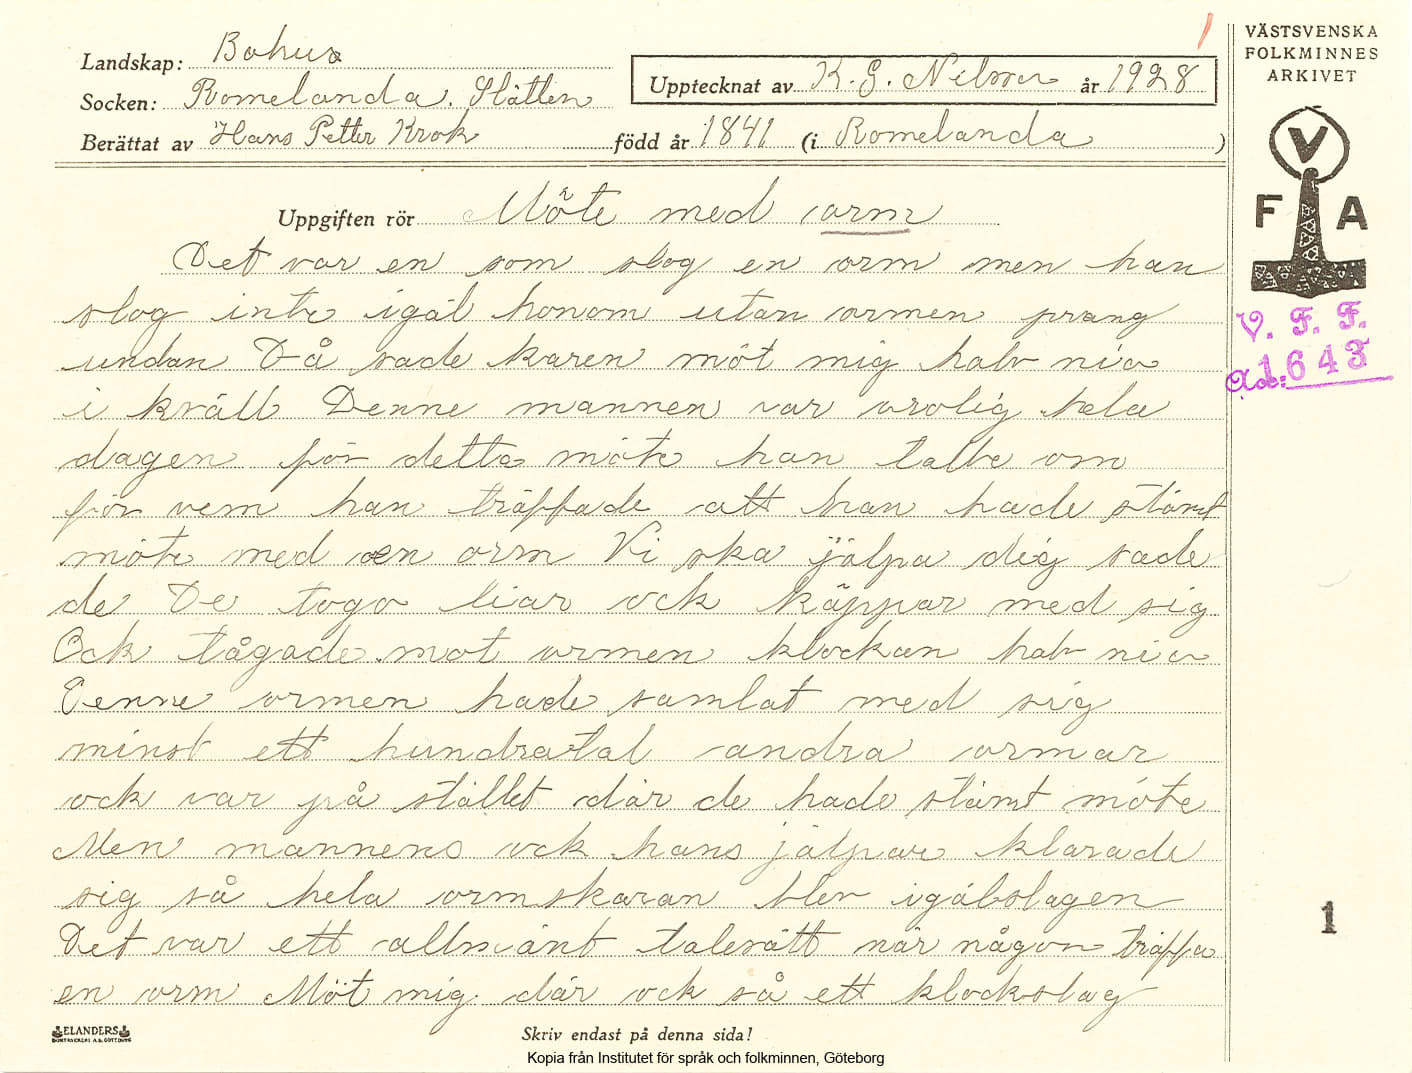 Landskap: Bohus
Socken: Romelanda. Slätten
Upptecknat av K. G. Nilsson år 1928
Berättat av Hans Petter Krok född år 1841 (i Romelanda )
VÄSTSVENSKA
FOLKMINNES
ARKIVET
V
F A
V. F. F.
Acc: 1643
Uppgiften rör Möte med orm
Det var en som slog en orm men han
slog inte igäl honom utan ormen prang
undan Då sade karen möt mig halv nio
i kväll Denne mannen var orolig hela
dagen för detta möte han talte om
för vem han träffade att han hade stämt
möte med en orm Vi ska jälpa dig sade
de De togo liar ock käppar med sig
Ock tågade mot ormen klockan halv nio
Denne ormen hade samlat med sig
minst ett hundratal andra ormar
ock var på stället där de hade stämt möte
Men mannens ock hans jälpare klarade
sig så hela ormskaran blev igälslagen
Det var ett allmänt talesätt när någon träffa
en orm Möt mig där ock så ett klockslag
1
ELANDERS
Skriv endast på denna sida!
Kopia från Institutet för språk och folkminnen, Göteborg